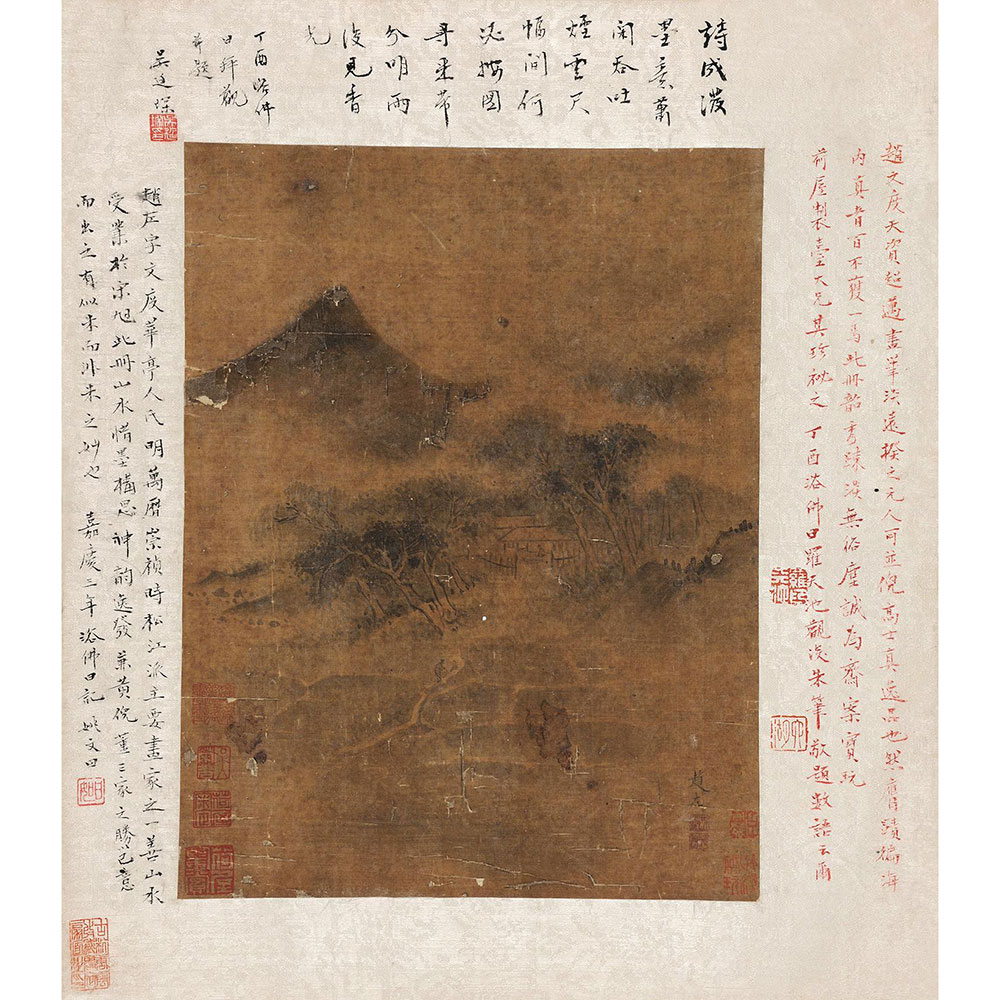 詩成潑
墨意蕭
閑吞吐
煙雲尺
幅間何
必按圖
尋米芾
分明雨
後見香
光
丁酉浴佛
日拜觀
並題
吳廷琛
趙文度天資超邁畫筆淡遠揆之元人可並倪高士真逸品也然舊蹟編海
內真者百不獲一焉此冊韶秀疎淡無俗塵誠為齋案寶玩
荷屋製臺大兄其珍祕之 丁酉浴佛日羅天池觀後朱筆敬題數語云爾
六湖
趙左
趙左字文度華亭人氏明萬曆崇禎時松江派主要畫家之一善山水
受業於宋旭此冊山水惜墨構思神韵逸發兼黃倪董三家之勝己意
而出之有似米而非米之妙也 嘉慶三年浴佛日記姚文田